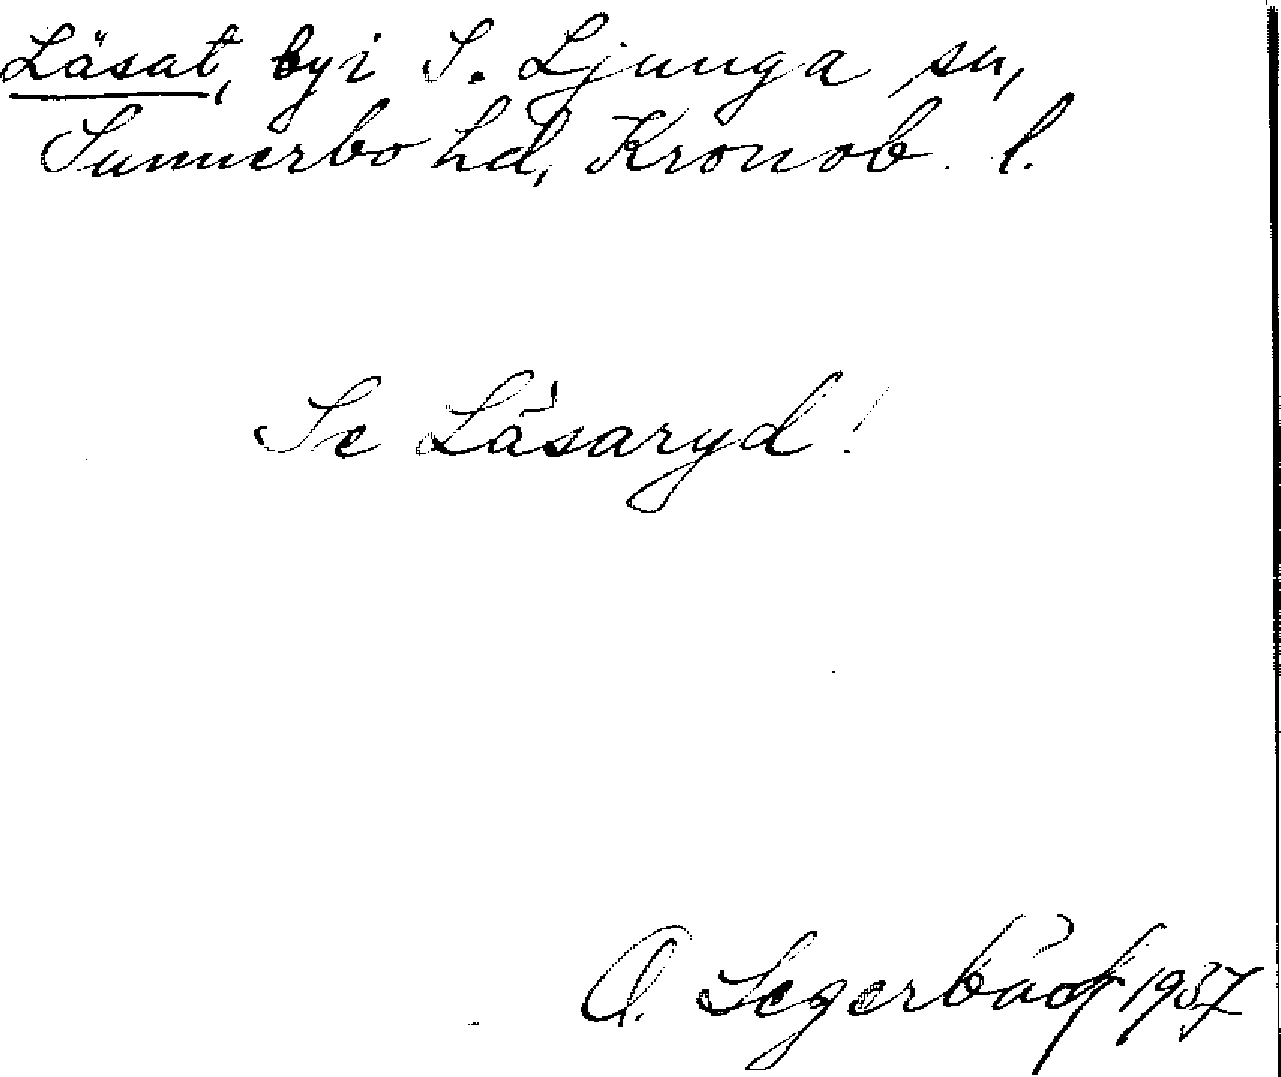 Läsat, by i S. Ljunga sn,
Sunnerbo hd, Kronob. l.
Se Läsaryd!
O. Segerbäck 1937